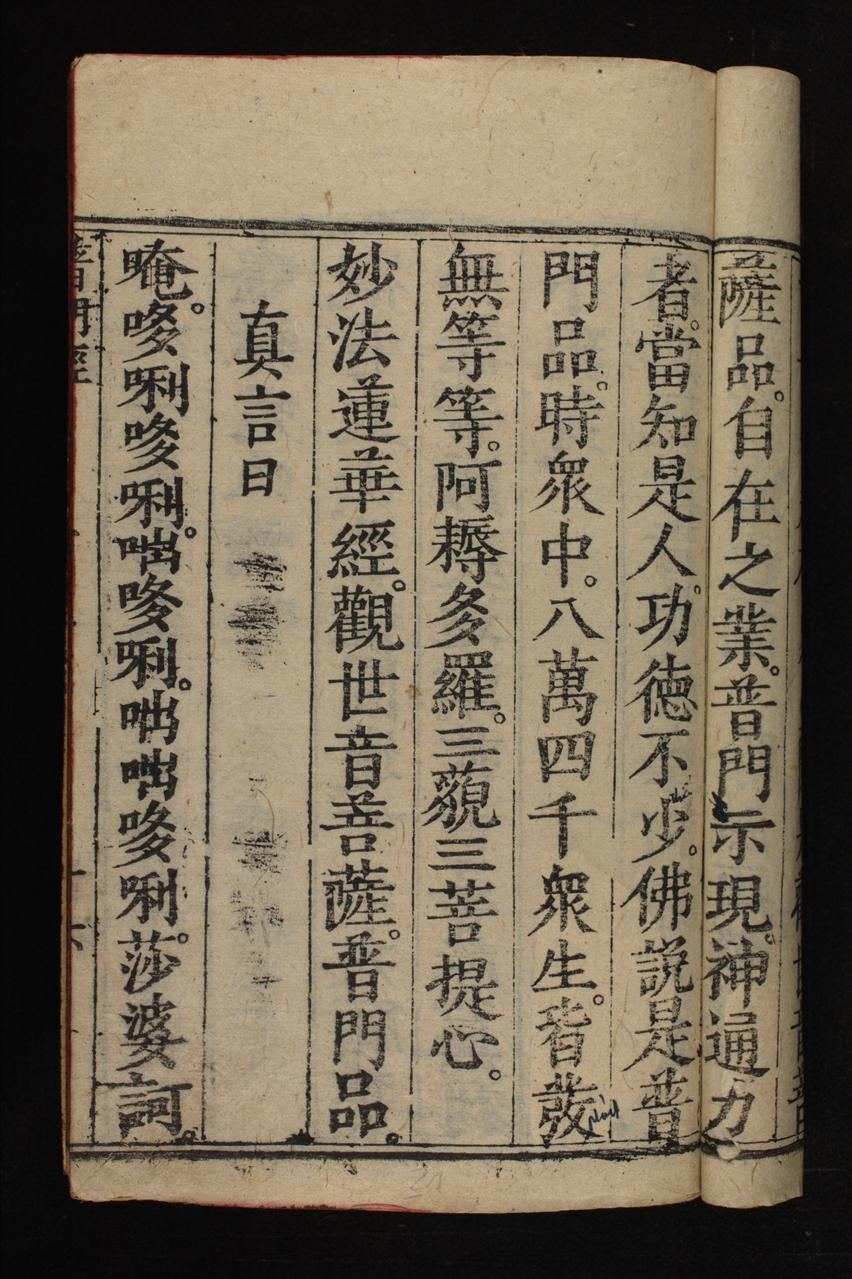 薩品。自在之業。普門示現。神通力。
者。當知是人。功德不少。佛説是普
門品。時衆中。八萬四千衆生。皆發
無等等。阿耨多羅。三藐三菩提心。
妙法蓮華經。觀世音菩薩。普門品。
真言曰
唵。哆唎哆唎。咄哆唎。咄咄哆唎。莎婆訶
普門經